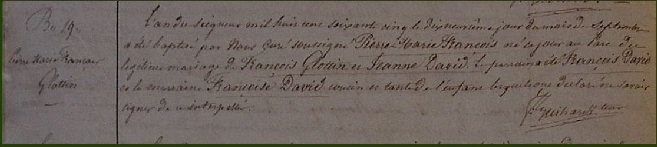 Bap. 19.
Pierre Marie François
Glotin
L'an du Seigneur mil huit cent soixante cinq le dixneuvième jour du mois de Septembre
a été baptisé par Nous Curé soussigné Pierre Marie François né ce jour au
légitime mariage de François Glotin et Jeanne David. Le parrain a été François David
et la marraine Françoise David cousin et tante de l'enfant lesquels ont déclaré ne savoir
signer de ce interpellés.